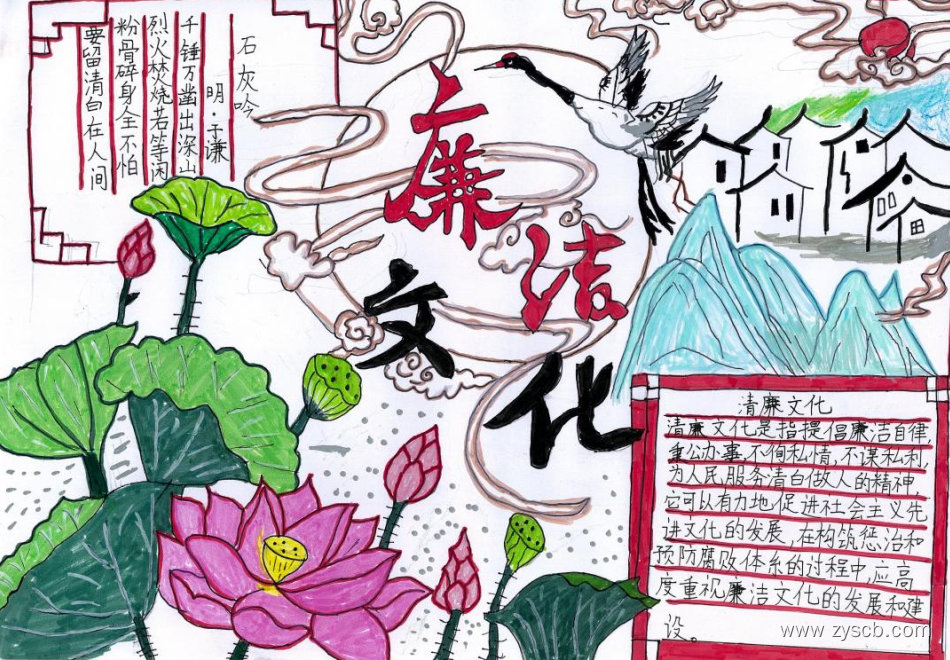 石灰吟
明·于谦
千锤万凿出深山
烈火焚烧若等闲
粉骨碎身全不怕
要留清白在人间
廉洁
文化
清廉文化
清廉文化是指提倡廉洁自律,
重公办事,不徇私情,不谋私利,
为人民服务清白做人的精神,
它可以有力地促进社会主义先
进文化的发展,在构筑惩治和
预防腐败体系的过程中,应高
度重视廉洁文化的发展和建
设。
www.zyscb.com